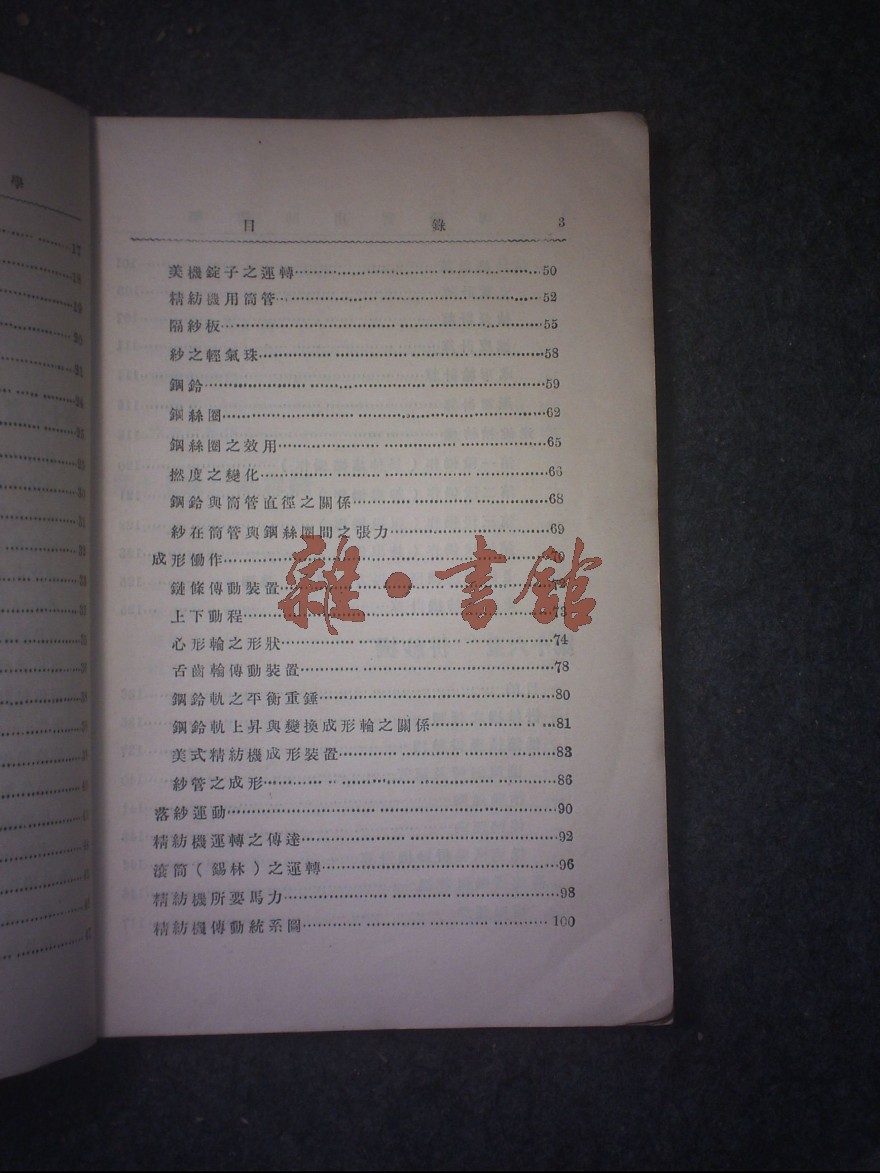 目 錄 3
美機錠子之運轉……50
精紡機用筒管……52
隔紗板……55
紗之輕氣珠……58
鋼鈴……59
鋼絲圈……62
鋼絲圈之效用……65
撚度之變化……66
鋼鈴與筒管直徑之關係……68
紗在筒管與鋼絲圈間之張力……69
成形働作……70
鏈條傳動裝置……
上下動程……73
心形輪之形狀……74
舌齒輪傳動裝置……78
鋼鈴軌之平衡重錘……80
鋼鈴軌上昇與變換成形輪之關係……81
美式精紡機成形裝置……83
紗管之成形……86
落紗運動……90
精紡機運轉之傳達……92
滾筒(錫林)之運轉……96
精紡機所要馬力……98
精紡機傳動統系圖……100
雜·書館
學